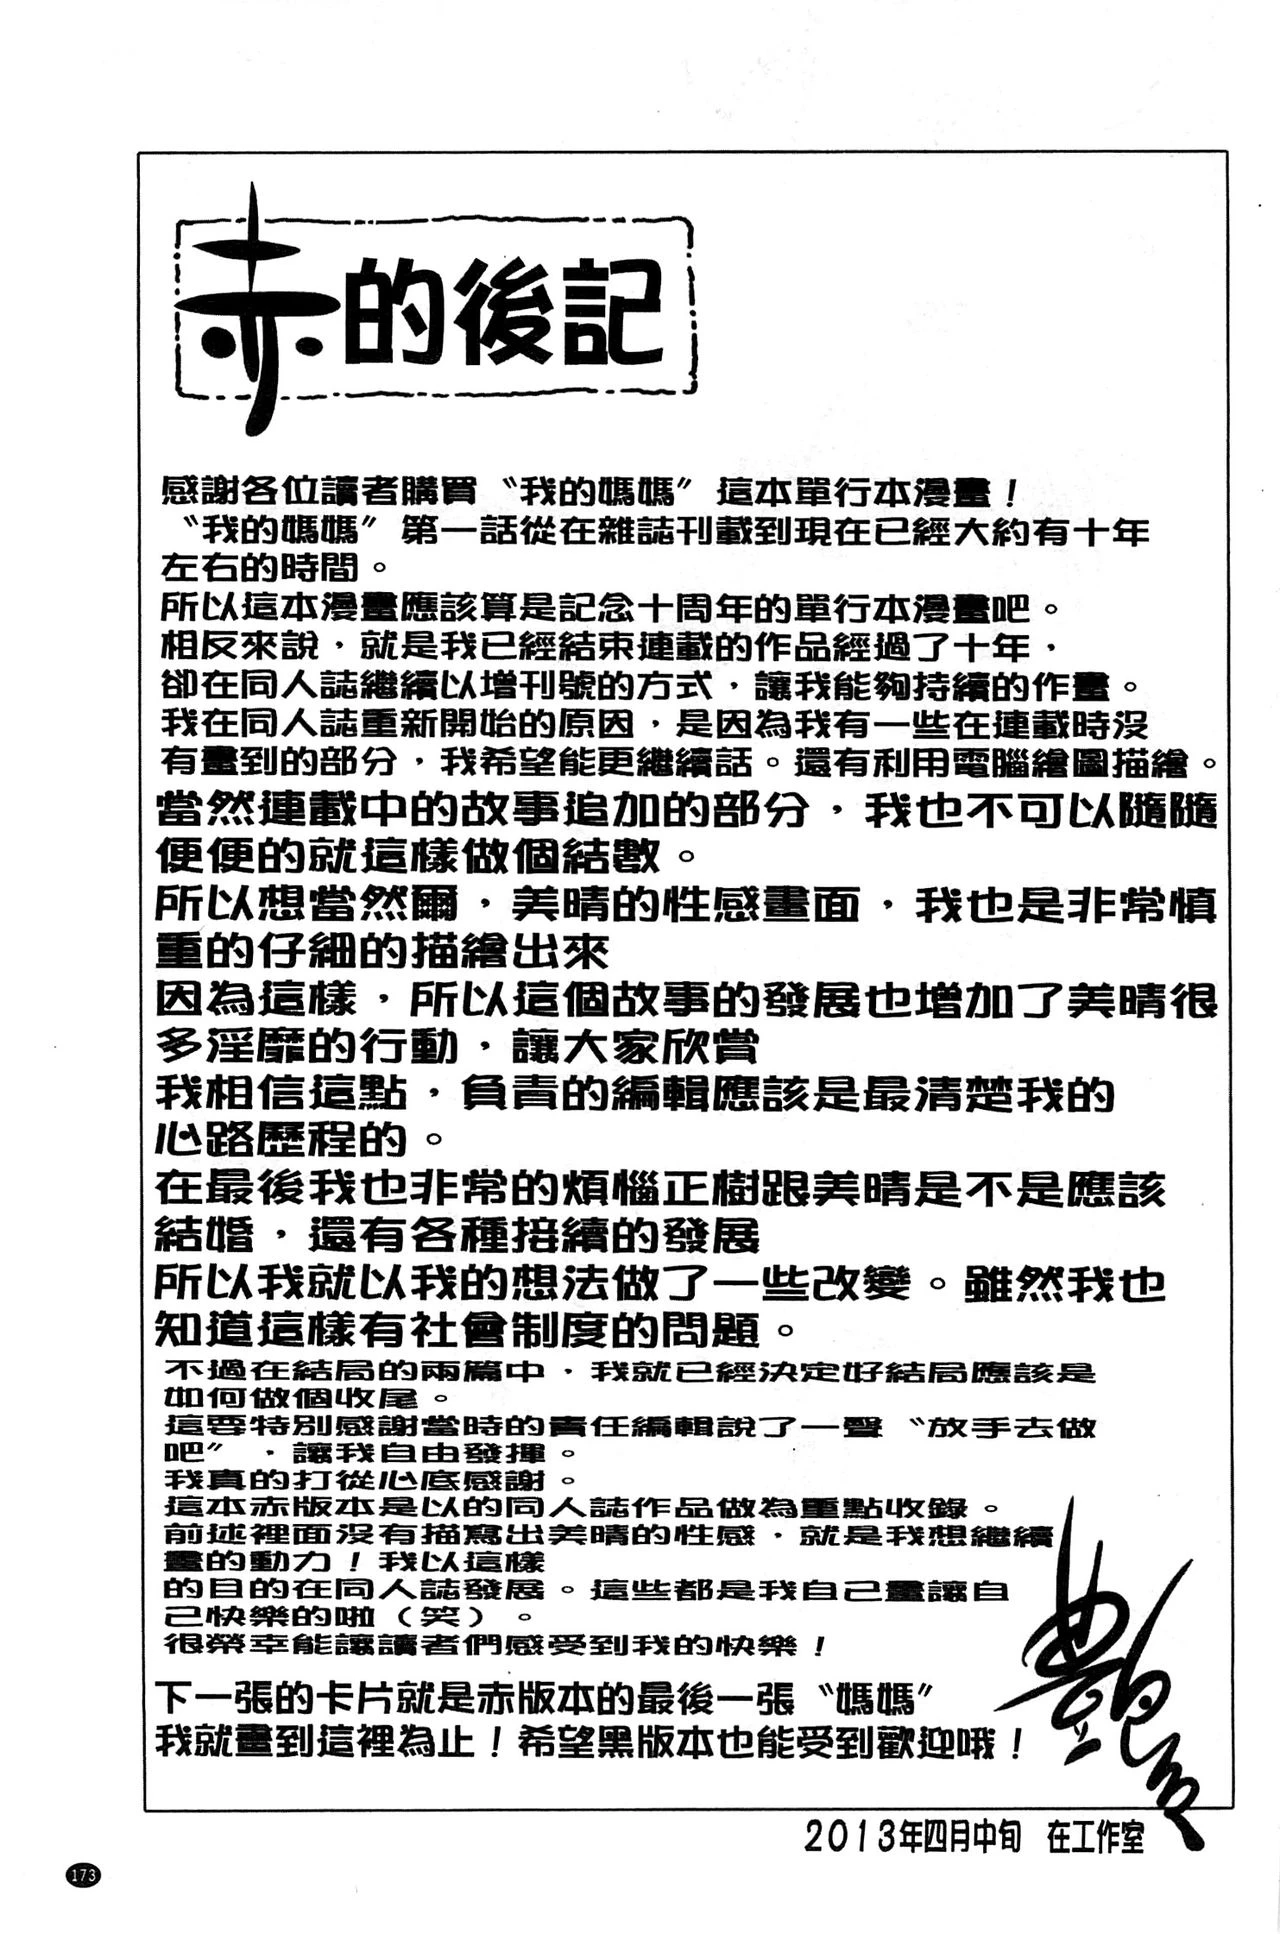 赤的後記
感謝各位讀者購買〝我的媽媽〞這本單行本漫畫！
〝我的媽媽〞第一話從在雜誌刊載到現在已經大約有十年
左右的時間。
所以這本漫畫應該算是記念十周年的單行本漫畫吧。
相反來說，就是我已經結束連載的作品經過了十年，
卻在同人誌繼續以增刊號的方式，讓我能夠持續的作畫。
我在同人誌重新開始的原因，是因為我有一些在連載時沒
有畫到的部分，我希望能更繼續話。還有利用電腦繪圖描繪。
當然連載中的故事追加的部分，我也不可以隨隨
便便的就這樣做個結數。
所以想當然爾，美晴的性感畫面，我也是非常慎
重的仔細的描繪出來
因為這樣，所以這個故事的發展也增加了美晴很
多淫靡的行動，讓大家欣賞
我相信這點，負責的編輯應該是最清楚我的
心路歷程的。
在最後我也非常的煩惱正樹跟美晴是不是應該
結婚，還有各種接續的發展
所以我就以我的想法做了一些改變。雖然我也
知道這樣有社會制度的問題。
不過在結局的兩篇中，我就已經決定好結局應該是
如何做個收尾。
這要特別感謝當時的責任編輯說了一聲〝放手去做
吧〞，讓我自由發揮。
我真的打從心底感謝。
這本赤版本是以的同人誌作品做為重點收錄。
前述裡面沒有描寫出美晴的性感，就是我想繼續
畫的動力！我以這樣
的目的在同人誌發展。這些都是我自己畫讓自
己快樂的啦（笑）。
很榮幸能讓讀者們感受到我的快樂！
下一張的卡片就是赤版本的最後一張〝媽媽〞
我就畫到這裡為止！希望黑版本也能受到歡迎哦！
2013年四月中旬　在工作室
173